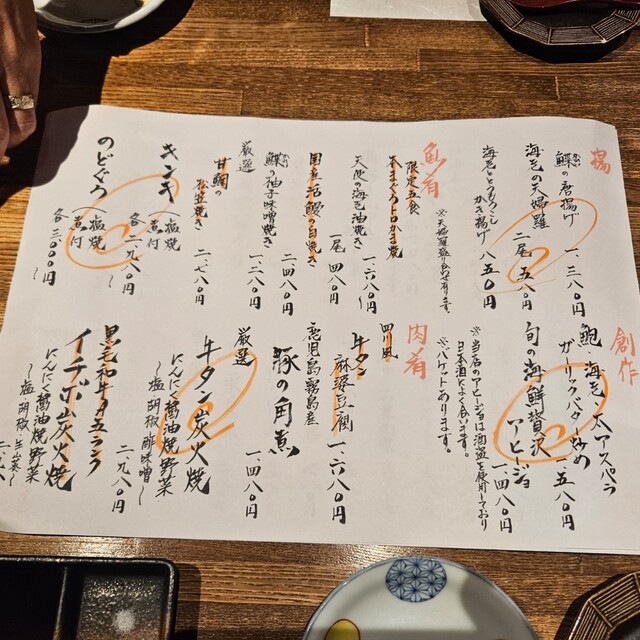 揚
鰈の唐揚げ 一、三八〇円
海老の天婦羅 二尾 五八〇円
海老とうもろこし
かき揚げ 八五〇円
※天婦羅盛り合せ有ります。
魚肴
限定三食
本まぐろトロかま焼
一、六八〇円
天使の海老油焼き
一尾 四八〇円
国産活鰻の白焼き
二四八〇円
鰆の柚子味噌焼き
一、二八〇円
厳選
甘鯛の
松笠焼き 二、七八〇円
キンキ(塩焼 煮付
各一、九八〇円〜
のどぐろ(塩焼 煮付
各三〇〇〇円〜
創作
鮑、海老、太アスパラ
ガーリックバター炒め
一、五八〇円
旬の海鮮贅沢
アヒージョ
一、四八〇円
※当店のアヒージョは酒盗を使用しており
日本酒によく合います。
※バケットあります。
肉肴
四川風
牛タン
麻婆豆腐 一、六八〇円
鹿児島霧島産
豚の角煮
一、四八〇円
厳選
牛タン炭火焼
にんにく醤油焼野菜
〜塩 胡椒 酢味噌〜
二、九八〇円
黒毛和牛A五ランク
イチボ炭火焼
にんにく醤油焼野菜
〜塩 胡椒